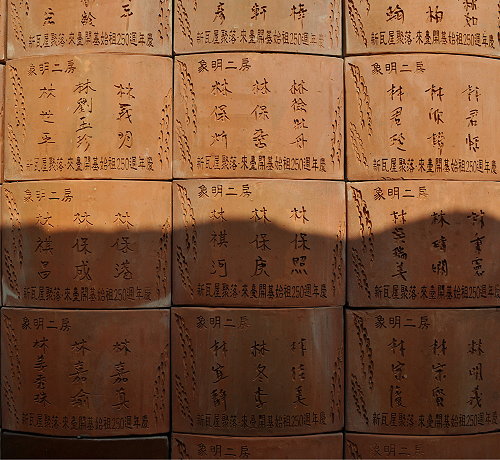 新瓦屋聚落·來臺開基始祖250週年慶
新瓦屋聚落·來臺開基始祖250週年慶
新瓦屋聚落·來臺開基始祖250週年慶
象明二房
林義明
林劉玉珍
林世平
新瓦屋聚落·來臺開基始祖250週年慶
象明二房
林保
林保
新瓦屋聚落·來臺開基始祖250週年慶
象明二房
林君
林
林君
新瓦屋聚落·來臺開基始祖250週年慶
象明二房
林保港
林保成
林祺昌
新瓦屋聚落·來臺開基始祖250週年慶
象明二房
林保照
林保庚
林祺河
新瓦屋聚落·來臺開基始祖250週年慶
象明二房
林
林晴明
林瑞美
新瓦屋聚落·來臺開基始祖250週年慶
象明二房
林嘉真
林嘉俞
林美珠
新瓦屋聚落·來臺開基始祖250週年慶
象明二房
林佳美
林冬
林宜靜
新瓦屋聚落·來臺開基始祖250週年慶
象明二房
林明義
林宗賢
林宗俊
新瓦屋聚落·來臺開基始祖250週年慶
象明二房
象明二房